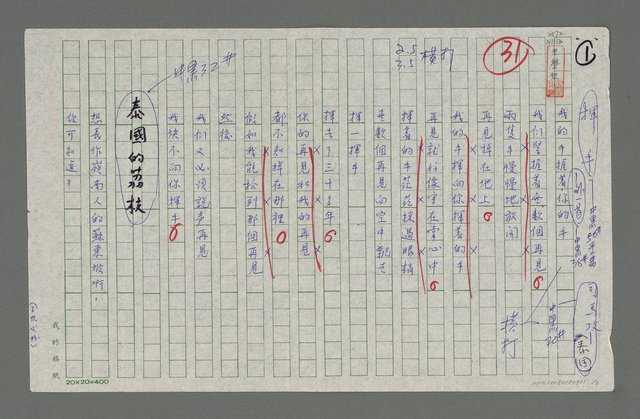 揮手
司馬攻
泰國
我的手握着你的手
我們緊握着無數個再見
兩隻手慢慢地放開
再見掉在地上
我的手揮向你揮着的手
再見就好像寫在雲心中
揮着的手茫茫撲過眼睛
無數個再見向空中飄去
揮一揮手
揮去了三十多年
你的再見和我的再見
都不知掉在那裡
假如我能拾到那個再見
然後
我們又必須說聲再見
我決不向你揮手
泰國的荔枝
想長作嶺南人的蘇東坡啊!
你可知道?
中黑32#
2.5
3.5
橫打
31
1
橫打
我的稿紙
20×20=400